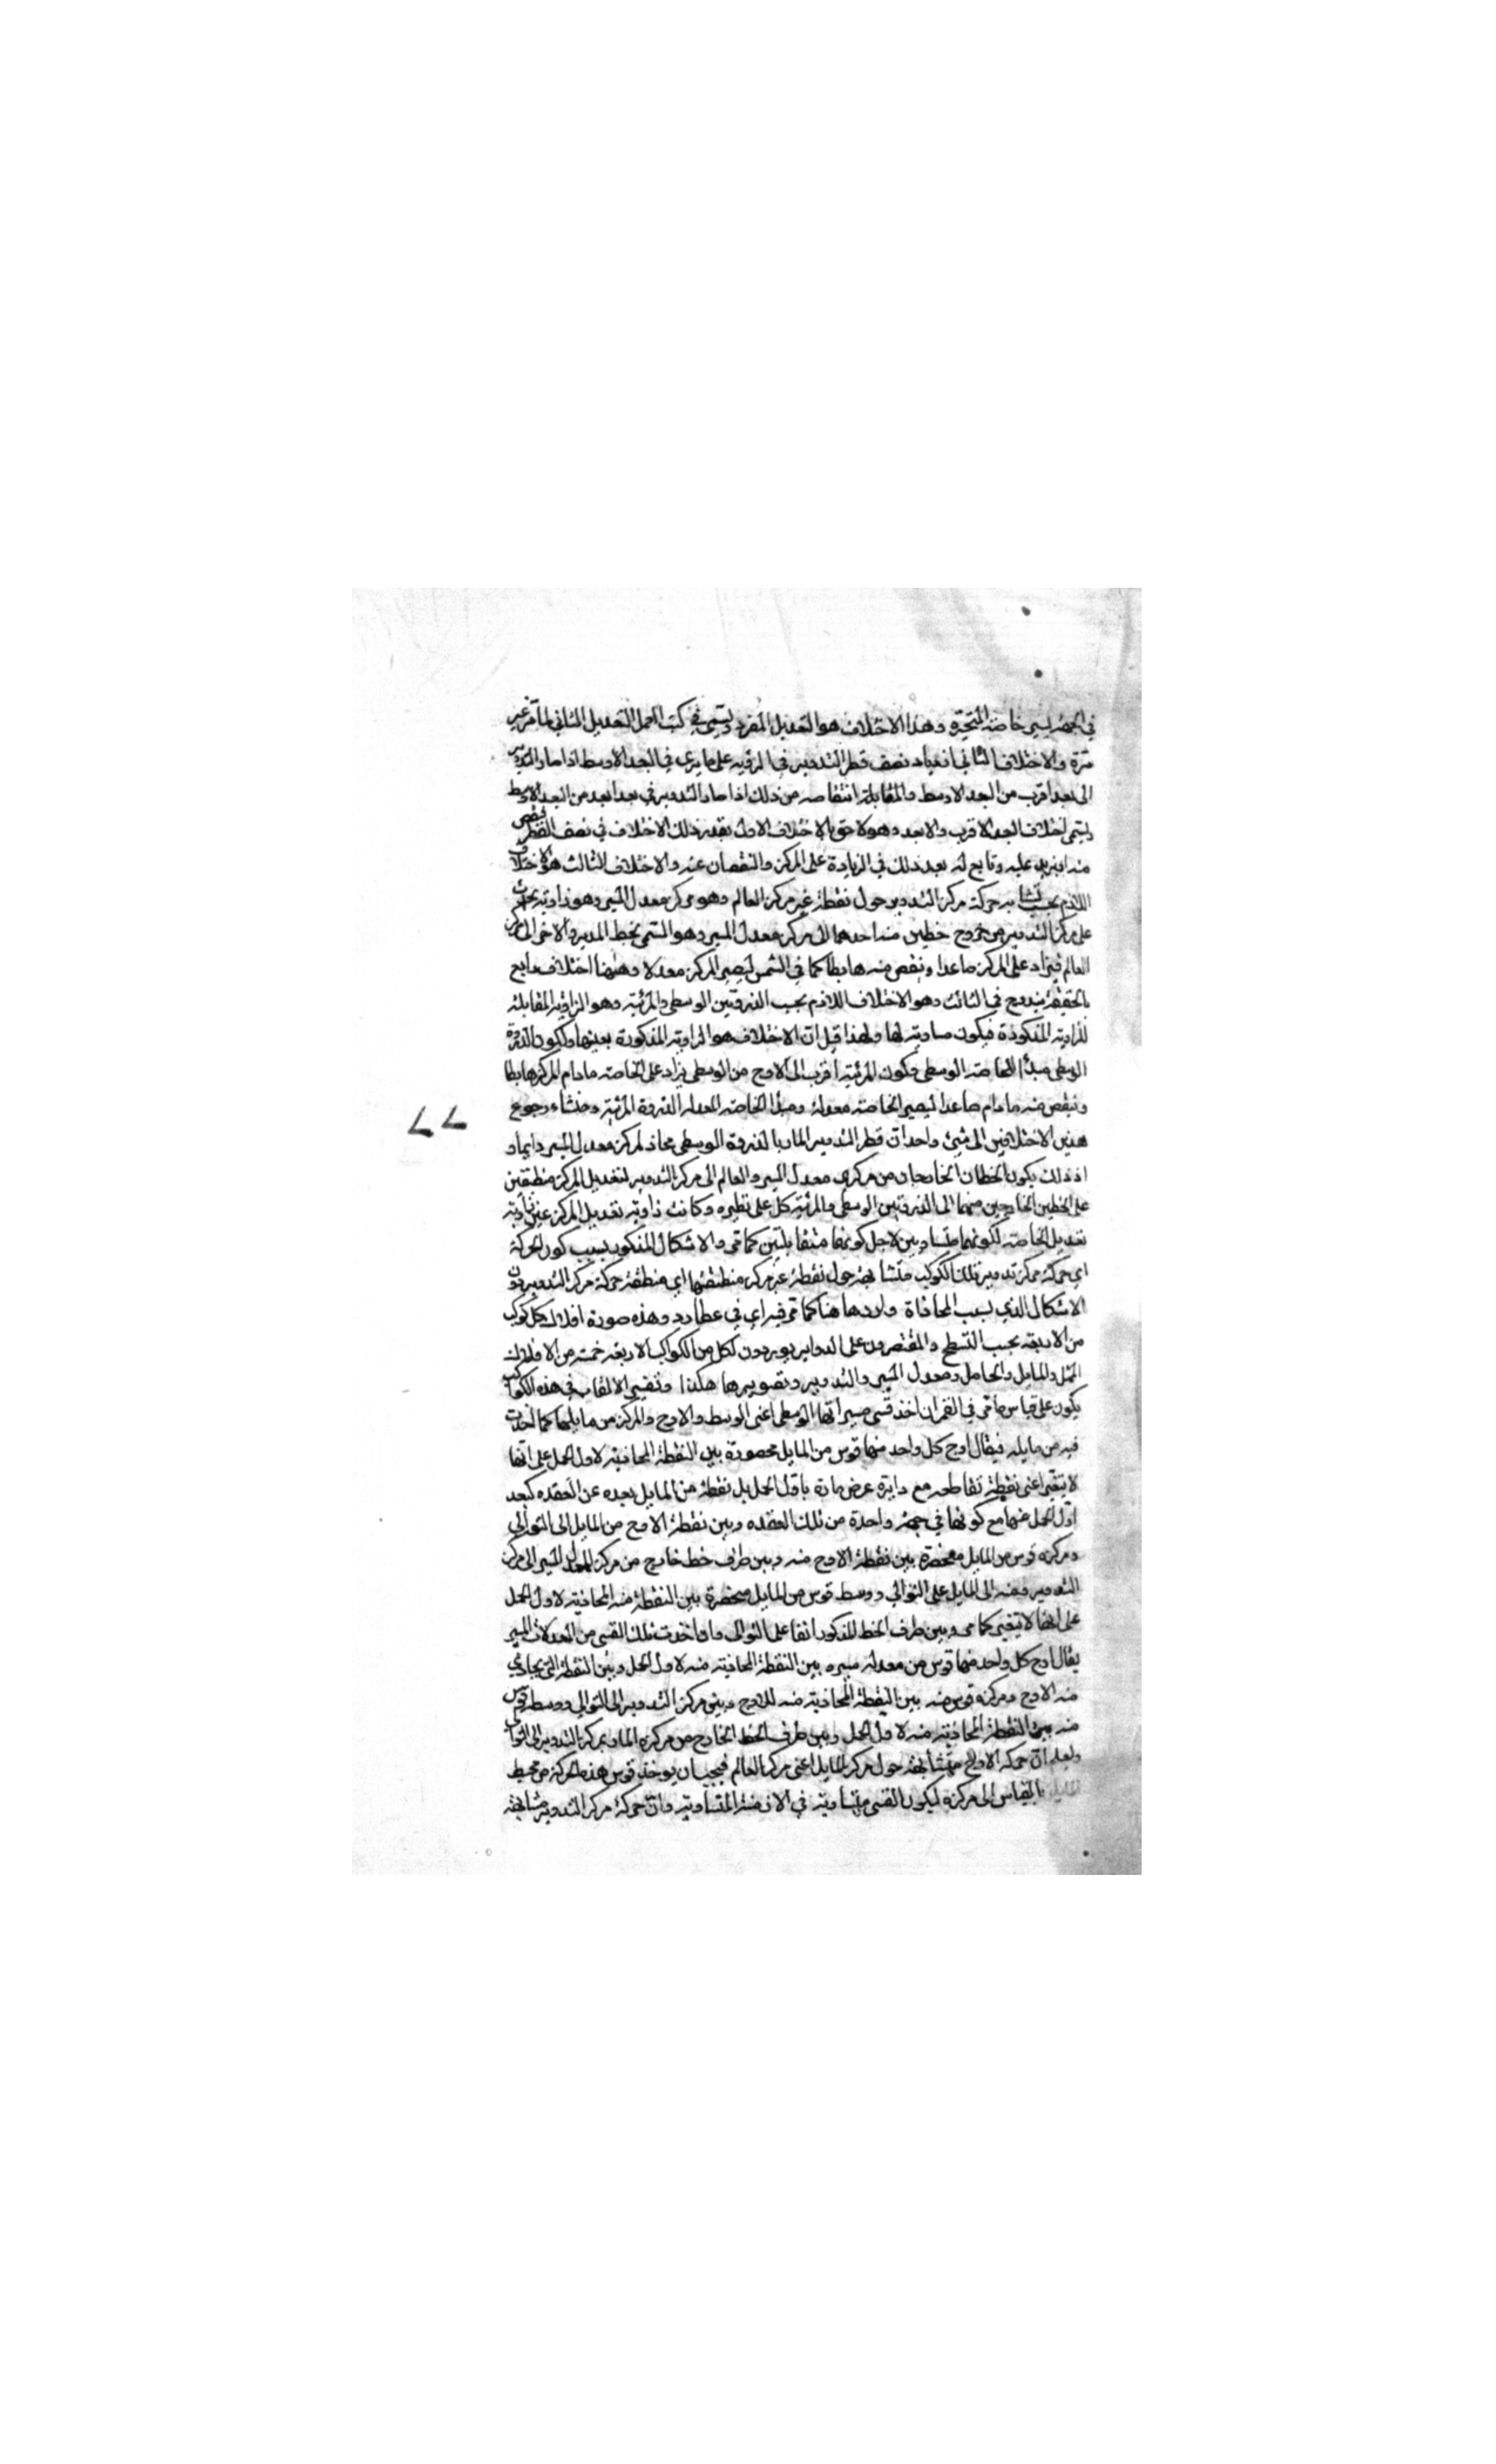 في الجهة لسير خاصة المتحيرة وهذا الاختلاف هو التعديل المفرد ويسمى في كتب العمل التعديل الثاني لما مر غير
مرة والاختلاف الثاني ازدياد نصف قطر التدوير في الرؤيه على ما يرى في البعد الاوسط اذا صار التدوير
الى بعد اقرب من البعد الاوسط والمقابلة انتقاصه من ذلك اذا صار التدوير في بعد ابعد من البعد الاوسط
ويسمى اختلاف البعد الاقرب والابعد وهو لاحق بالاختلاف الاول بقدر ذلك الاختلاف في نصف القطر فينقص
منه او يزيد عليه وتابع له بعد ذلك في الزيادة على المركز والنقصان عنه والاختلاف الثالث هو الاختلاف
اللازم بحسب تشابه حركة مركز التدوير حول نقطة غير مركز العالم وهو مركز معدل المسير وهو زاوية تحدث
على مركز التدوير من خروج خطين منه احدهما الى مركز معدل المسير وهو المسمى بخط المدير والاخر الى مركز
العالم فيزاد على المركز صاعدا وينقص منه هابطا كما في الشمس ليصير المركز معدلا وههنا اختلاف رابع
بالحقيقة يندرج في الثالث وهو الاختلاف اللازم بحسب الذروتين الوسطى والمرئية وهو الزاوية المقابلة
للزاوية المذكورة فيكون مساوية لها ولهذا قيل ان الاختلاف هو الزاوية المذكورة بعينها ولكون الذروة
الوسطى مبدأ الخاصة الوسطى وكون المرئية اقرب الى الاوج من الوسطى يزاد على الخاصة ما دام المركز هابطا
وينقص منه ما دام صاعدا ليصير الخاصة معدلة ومبدأ الخاصة المعدلة الذروة المرئية ومنشاء رجوع
هذين الاختلافين الى شيئ واحد ان قطر التدوير المار بالذروة الوسطى محاذ لمركز معدل المسير دايما و
اذ ذلك يكون الخطان الخارجان من مركزي معدل المسير والعالم الى مركز التدوير لتعديل المركز منطبقين
على الخطين الخارجين منهما الى الذروتين الوسطى والمرئية كل على نظيره وكانت زاوية تعديل المركز عين زاوية
تعديل الخاصة لكونهما متساويتين لاجل كونهما متقابلتين كما مر والاشكال المذكور بسبب كون الحركة
اي حركة مركز تدوير تلك الكوكب متشابهة حول نقطة غير مركز منطقتها اي منطقة حركة مركز التدوير دون
الاشكال الذي بسبب المحاذاة وارد ههنا كما مر فيه اي في عطارد وهذه صورة افلاك كل كوكب
من الاربعة بحسب التسطح والمقتصرون على الدواير يوردون لكل من الكواكب الاربعة خمسة من الافلاك
الممثل والمايل والحامل ومعدل المسير والتدوير وتصويرها هكذا وتفسير الالقاب في هذه الكواكب
يكون على قياس ما مر في القمر ان اخذ قسي مسيراتها الوسطى اعني الوسط والاوج والمركز من مايلها كما اخذت
فيه من مايله فيقال اوج كل واحد منها قوس من المايل محصورة بين النقطة المحاذية لاول الحمل على انها
لا يتغير اعني نقطة تقاطعه مع دايرة عرض مارة باول الحمل بل نقطة من المايل بعده عن العقده كبعد
اول الحمل عنها مع كونها في جهة واحدة من تلك العقده وبين نقطة الاوج من المايل الى التوالي
ومركزه قوس من المايل منحصرة بين نقطة الاوج منه وبين طرف خط خارج من مركز المعدل المسير الى مركز
التدوير ومنه الى المايل على التوالي ووسط قوس من المايل منحصرة بين النقطة منه المحاذية لاول الحمل
على انها لا يتغير كما مر وبين طرف الخط المذكور انفا على التوالي واما اخذت تلك القسي من المعدلات المسير
يقال اوج كل واحد منها قوس من معدل مسيره بين النقطة المحاذية منه لاول الحمل وبين النقطة التي يحاذي
منه الاوج ومركزه قوس منه بين النقطة المحاذية منه للاوج وبين مركز التدوير الى التوالي ووسطه قوس
منه بين النقطة المحاذية منه لاول الحمل وبين طرف الخط الخارج من مركزه المار بمركز التدوير الى التوالي
وليعلم ان حركة الاوج متشابهة حول مركز المايل اعني مركز العالم فيجب ان يوخذ قوس هذه الحركة من محيط
بالقياس الى مركزه ليكون القسي متساوية في الازمنة المتساوية وان حركة مركز التدوير متشابهة
77